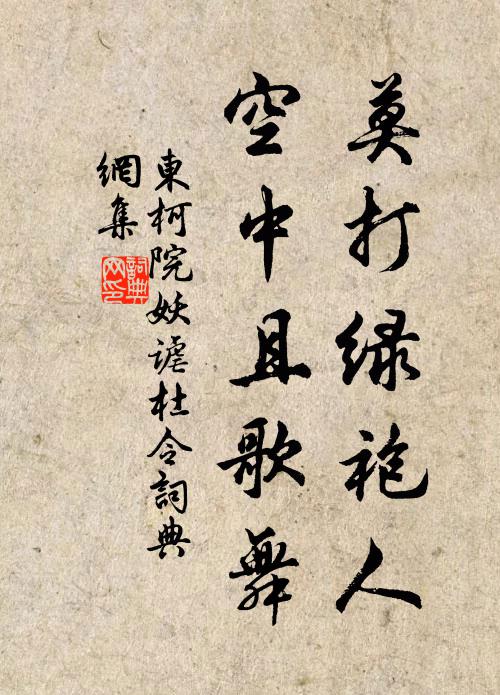 莫打绿袍人
空中且歌舞
東柯院妖謔杜令詞典
網集
詞典
网印